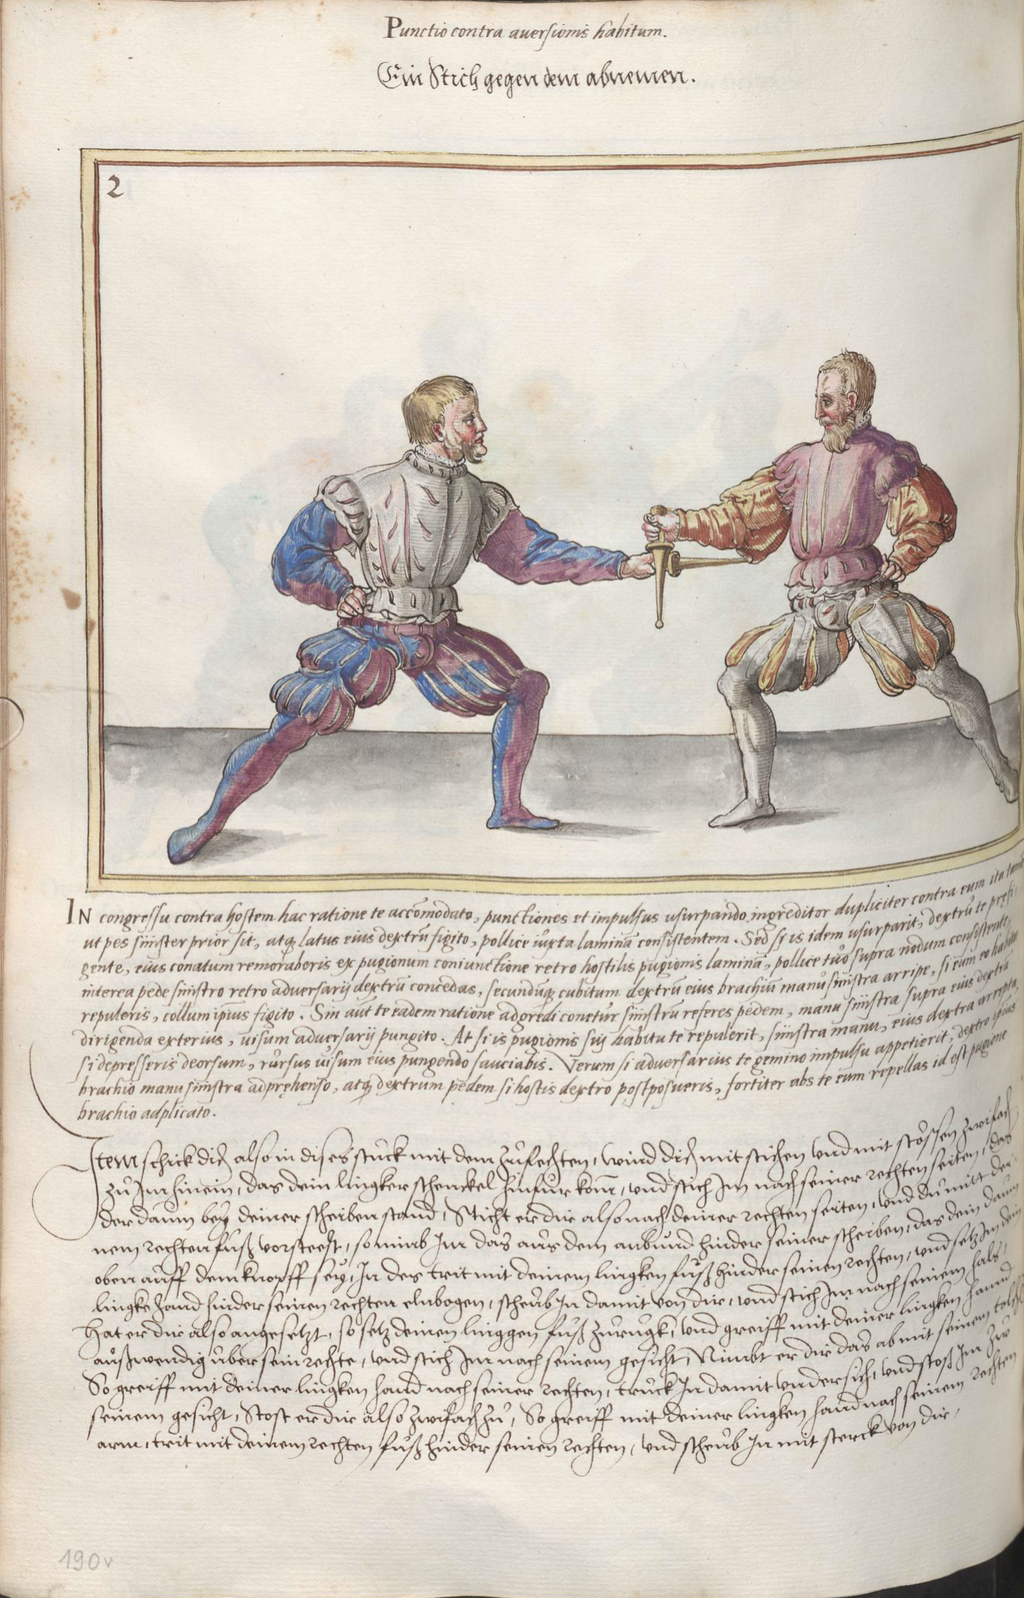 Punctio contra auersionis habitum.
Ein Stich gegen dem abnemen.
2
IN congressu contra hostem hac ratione te accõmodato, punctiones et impulsus usurpando, ingreditor dupliciter contra eum ita tamen
ut pes sinister prior sit, atq latus eius dextrũ figito, pollice iuxta laminã consistentem. Sed si is idem usurparit, dextrũ te præfi-
gente, eius conatum remoraberis ex pugionum coniunctione retro hostilis pugionis laminã, pollice tuo supra nodum consistente,
interea pede sinistro retro aduersarij dextrũ concedas, secundũq cubitum dextrũ eius brachiũ manu sinistra arripe, si eum eo habitu
repuleris, collum ipsius figito. Sin aut te eadem ratione adgredi conetur sinistrũ referes pedem, manu sinistra supra eius dextrã
dirigenda exterius, uisum aduersarij pungito. At si is pugionis sui habitu te repulerit, sinistra manu, eius dextra arrepta,
si depresseris deorsum, rursus uisum eius pungendo sauciabis. Verum si aduersarius te gemino impulsu appetierit, dextro ipsius
brachio manu sinistra adprehenso, atq dextrum pedem si hostis dextro postposueris, fortiter abs te eum repellas id est pugione
brachio adplicato.
Item schick dich also in dises stuck mit dem Zufechten, wind dich mit stichen vnd mit stössen zwifach
zu Im hinein, das dein lingker schenckel hinfur kom, vnd stich Im nach seiner rechten seiten, das
der daum bey deiner scheiben stand, Sticht er dir also nach deiner rechten seiten, vnd du mit dei-
nem rechten fuß vorsteest, so nimb Im das aus dem anbund hinder seiner scheiben, das dein daum
oben auff dem knopff sey, In des trit mit deinem lingken fuß hinder seinen rechten, vnd setz Im dein
lingke hand hinder seinen rechten elnbogen, scheub In damit von dir, vnd stich Im nach seinem hals,
Hat er dir also angesetzt, so setz deinen linggen fuß zurugk, vnd greiff mit deiner lingken hannd
außwendig uber sein rechte, vnd stich Im nach seinem gesicht, Nimbt er dir das ab mit seinem tolch
So greiff mit deiner lingken hand nach seiner rechten, truck In damit vndersich, vnd stoß Im zu
seinem gesicht, Stost er dir also zwifach zu, So greiff mit deiner lingken hand nach seinem rechten
arm, trit mit deinem rechten fuß hinder seinen rechten, vnd scheub In mit sterck von dir,
190v